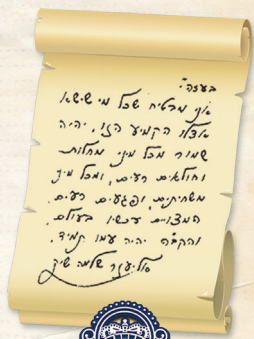 בעזה"י
אני מבטיח שכל מי שישא
אצלו הקמיע הזו, יהיה
שמור מכל מיני מחלות
וחולאים רעים, ומכל מיני
משחיתים, ופגעים רעים
המצויים עכשיו בעולם.
והקב"ה יהיה עמו תמיד.
אליעזר שלמה שיק